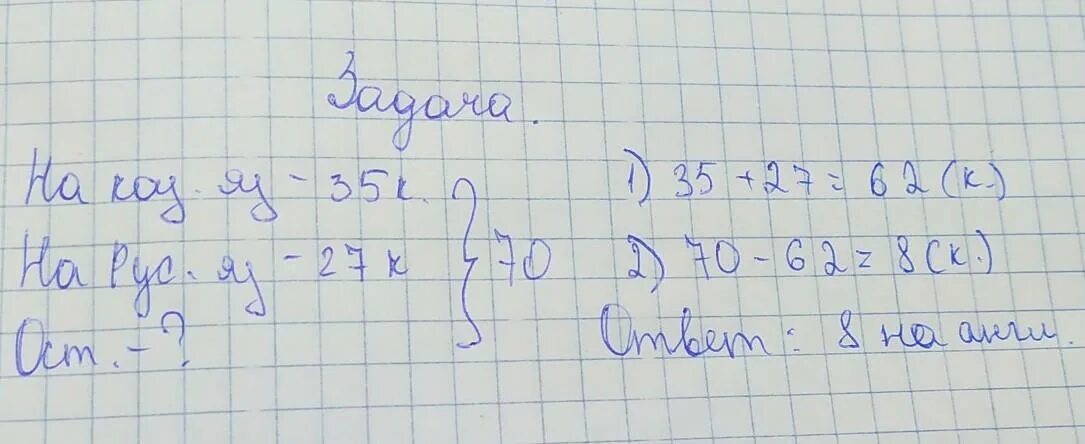 Задача.
На каз. яз - 35 к.
На Рус. яз - 27 к
Ост. - ?
70
1) 35 + 27 = 62 (к.)
2) 70 - 62 = 8 (к.)
Ответ: 8 на англ.